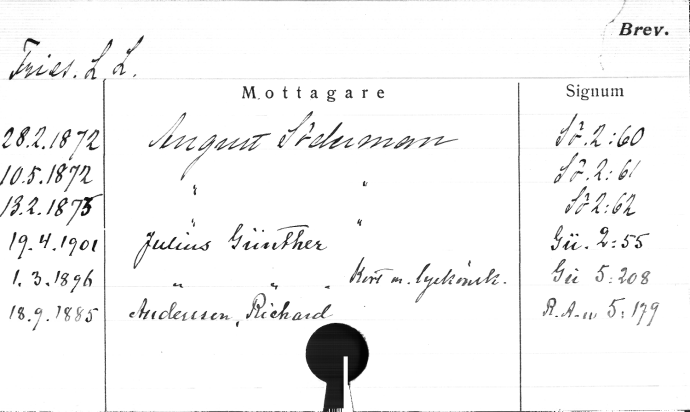 Brev.
Fries. L. L.
Mottagare Signum
28.2.1872 August Söderman Sö. 2:60
10.5.1872 " " Sö. 2:61
13.2.1875 " " Sö 2:62
19.4.1901 Julius Günther Gü. 2:55
1.3.1896 " " " Kort m. lyckönsk. Gü 5:208
18.9.1885 Andersson, Richard R.A-n 5:179